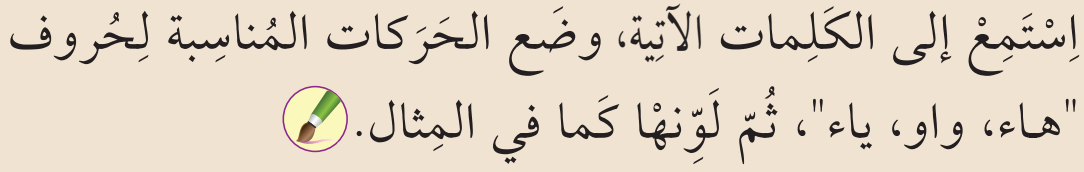 اِسْتَمِعْ إلى الكَلِمات الآتِية، وضَع الحَرَكات المُناسِبة لِحُروف
"هاء، واو، ياء"، ثُمّ لَوِّنهْا كَما في المِثال.